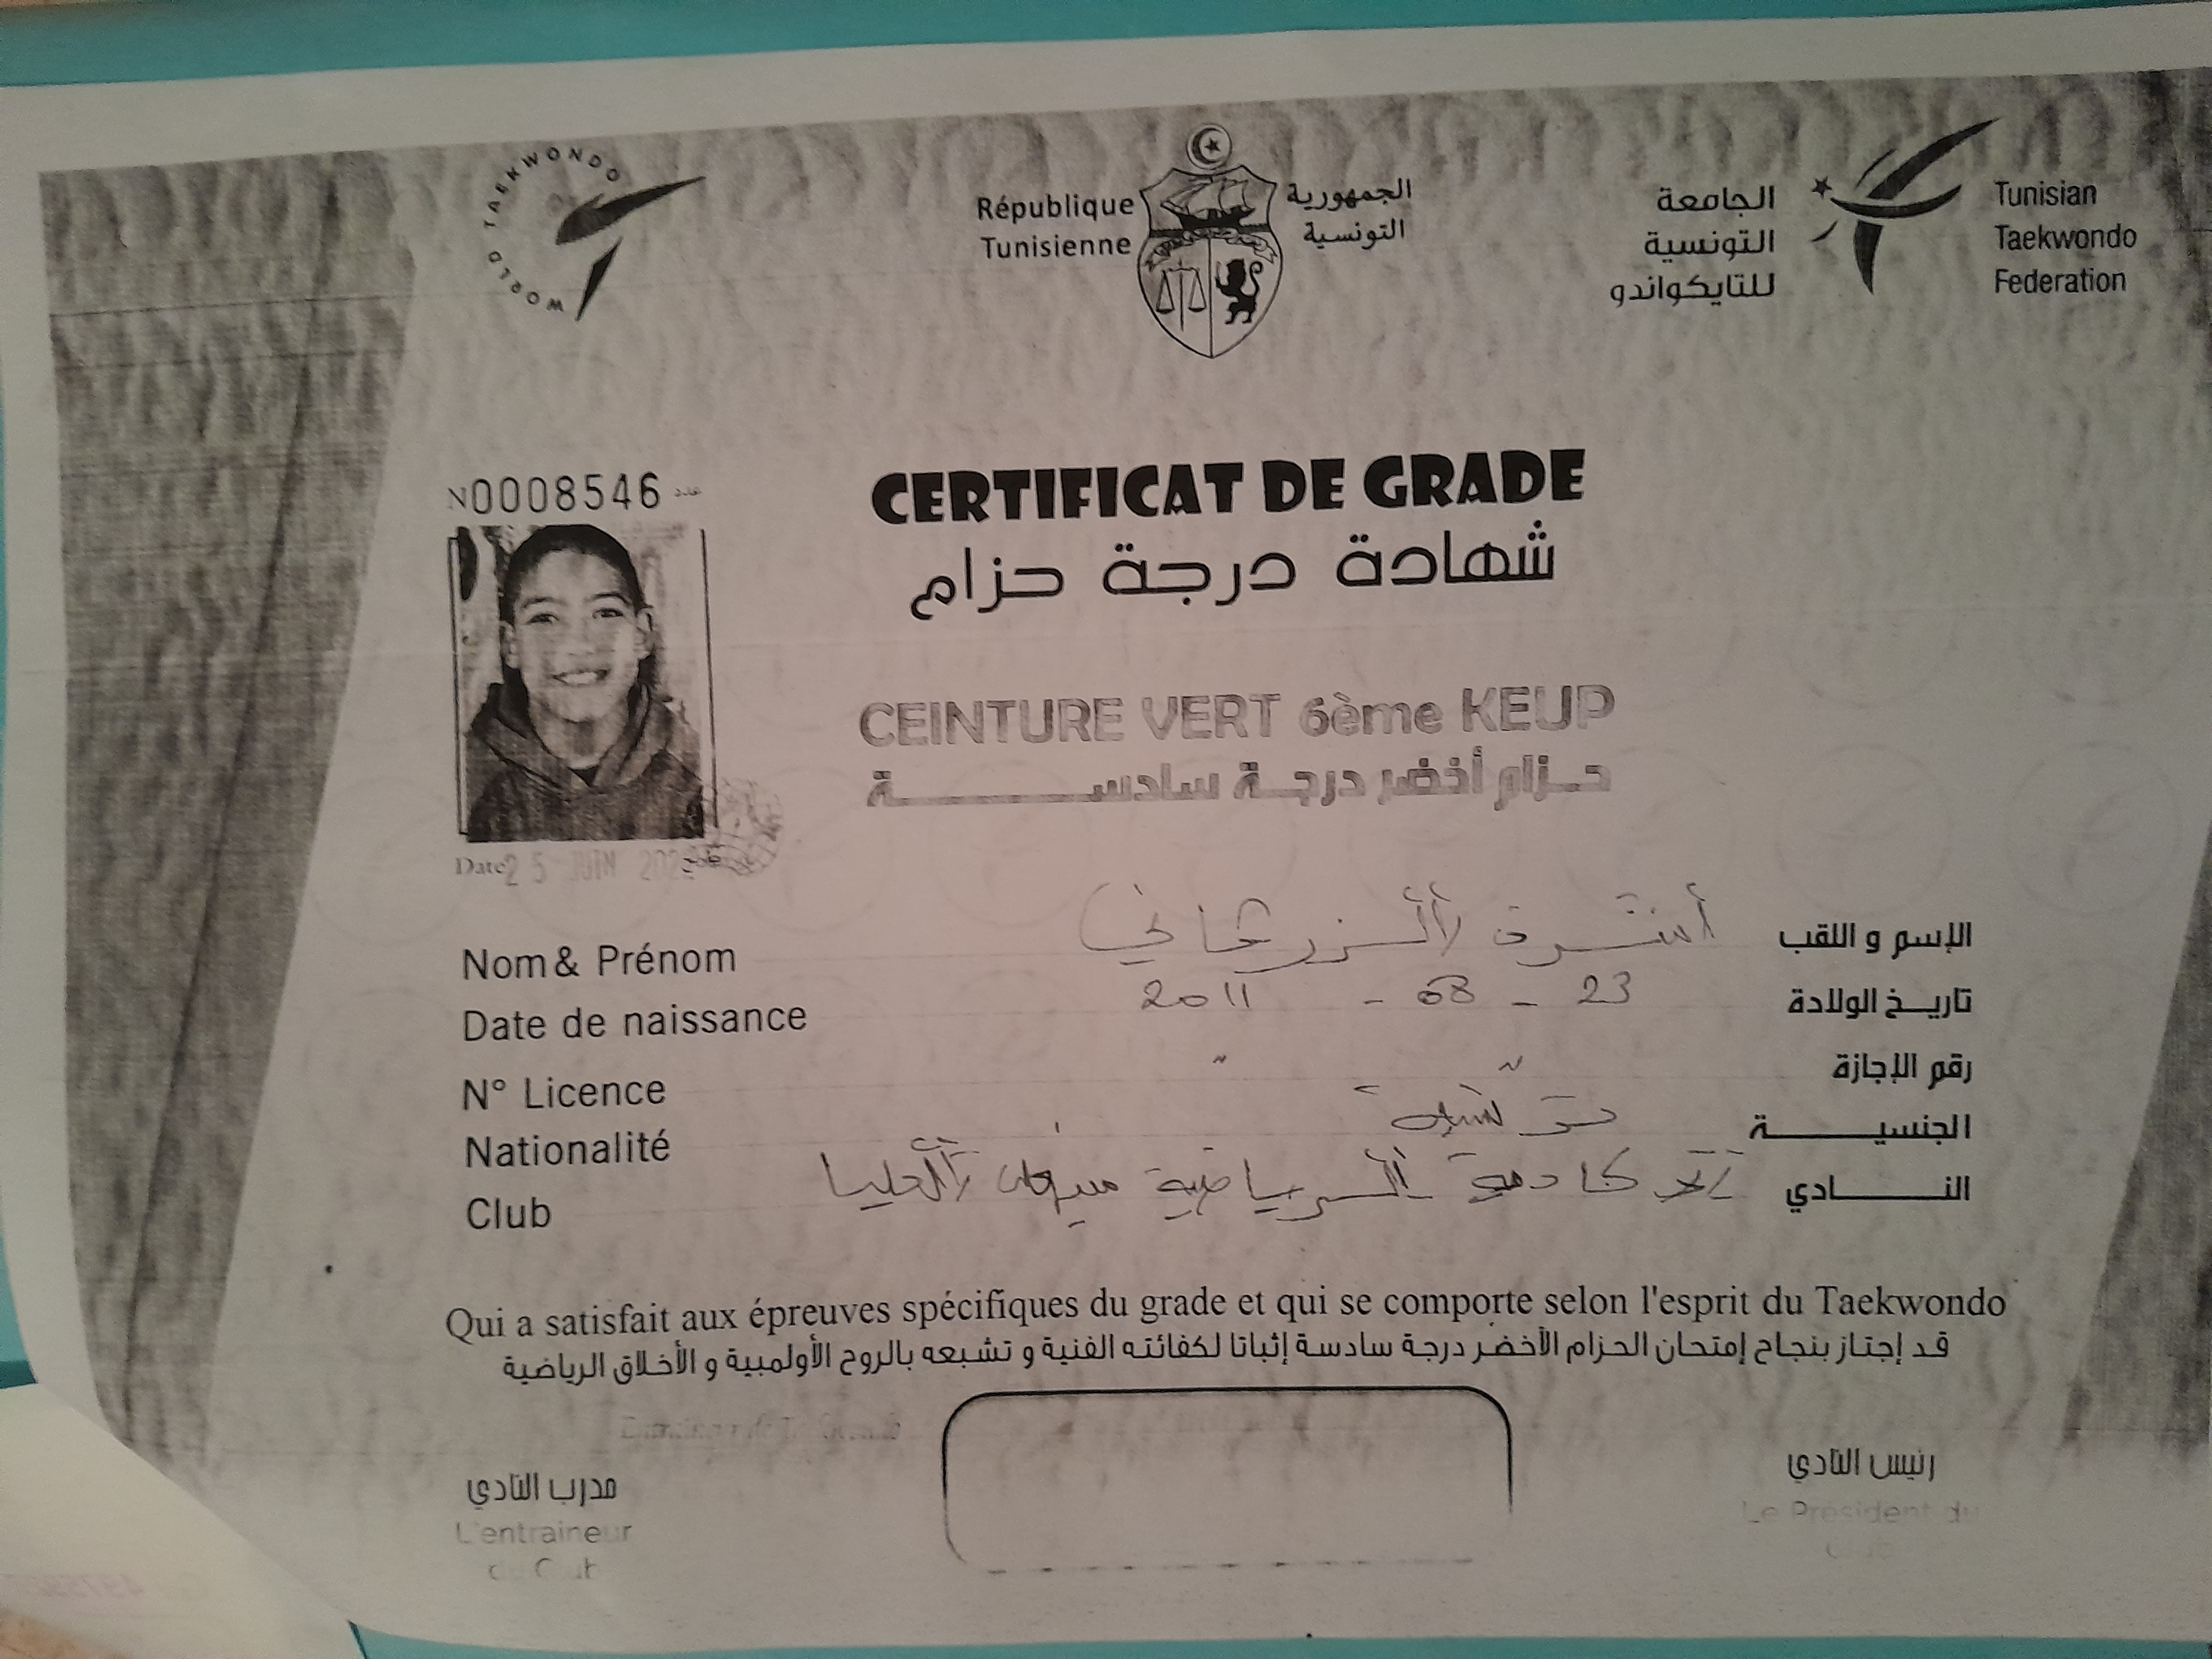 WORLD TAEKWONDO
République
Tunisienne
الجمهورية
التونسية
الجامعة
التونسية
للتايكواندو
Tunisian
Taekwondo
Federation
N0008546 عدد
CERTIFICAT DE GRADE
شهادة درجة حزام
CEINTURE VERT 6ème KEUP
حزام أخضر درجة سادسة
Date 25 JUIN
Nom & Prénom أشرف الزرقاني الإسم و اللقب
Date de naissance 23 - 08 - 2011 تاريخ الولادة
N° Licence رقم الإجازة
Nationalité تونسية الجنسية
Club الرياضية العليا النادي
Qui a satisfait aux épreuves spécifiques du grade et qui se comporte selon l'esprit du Taekwondo
قد إجتاز بنجاح إمتحان الحزام الأخضر درجة سادسة إثباتا لكفائته الفنية و تشبعه بالروح الأولمبية و الأخلاق الرياضية
مدرب النادي
L'entraineur
du Club
رئيس النادي
Le Président du
Club